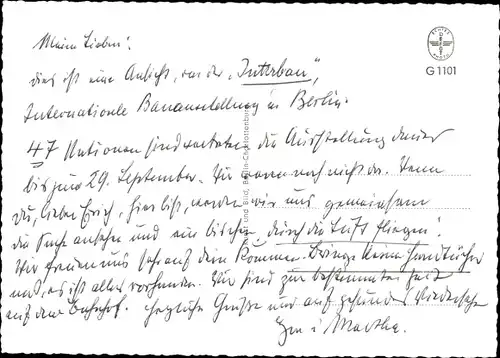 Meine Lieben!
dies ist eine Ansicht, von der „Interbau",
Internationale Bauausstellung in Berlin.
47 Nationen sind vertreten die Ausstellung dauert
bis zum 29. September. Wir waren noch nicht da. Wenn
du, lieber Erich, hier bist, werden wir uns gemeinsam
die Sache ansehen und ein bisschen durch die Luft fliegen!
Wir freuen uns sehr auf dein Kommen. Bringe keine Handtücher
mit, es ist alles vorhanden. Wir sind zur bestimmten Zeit
auf dem Bahnhof. Herzliche Grüße und auf gesundes Wiedersehn
Martha.
G 1101
und Bild, Berlin-Charlottenburg